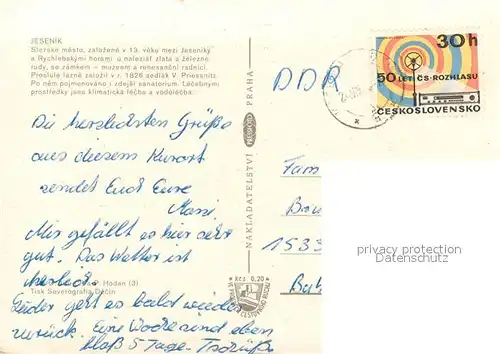 JESENÍK
Slezské město, založené v 13. věku mezi Jeseníky
a Rychlebskými horami u nalezišť zlata a železné
rudy, se zámkem – muzeem a renesanční radnicí.
Proslulé lázně založil v r. 1826 sedlák V. Priessnitz.
Po něm pojmenováno i zdejší sanatorium. Léčebnými
prostředky jsou klimatická léčba a vodoléčba.
Die herzlichsten Grüße
aus diesem Kurort
sendet Euch Eure
Mir gefällt es hier sehr
gut. Das Wetter ist
herrlich.
Leider geht es bald wieder
zurück. Eine Woche sind eben
bloß 5 Tage. Tschüß
Hodan (3)
Tisk Severografia Děčín
NAKLADATELSTVÍ
PRESSFOTO
PRAHA
Kčs 0,20
DDR
30h
50 LET ČS. ROZHLASU
ČESKOSLOVENSKO
Fam
1533
privacy protection
Datenschutz